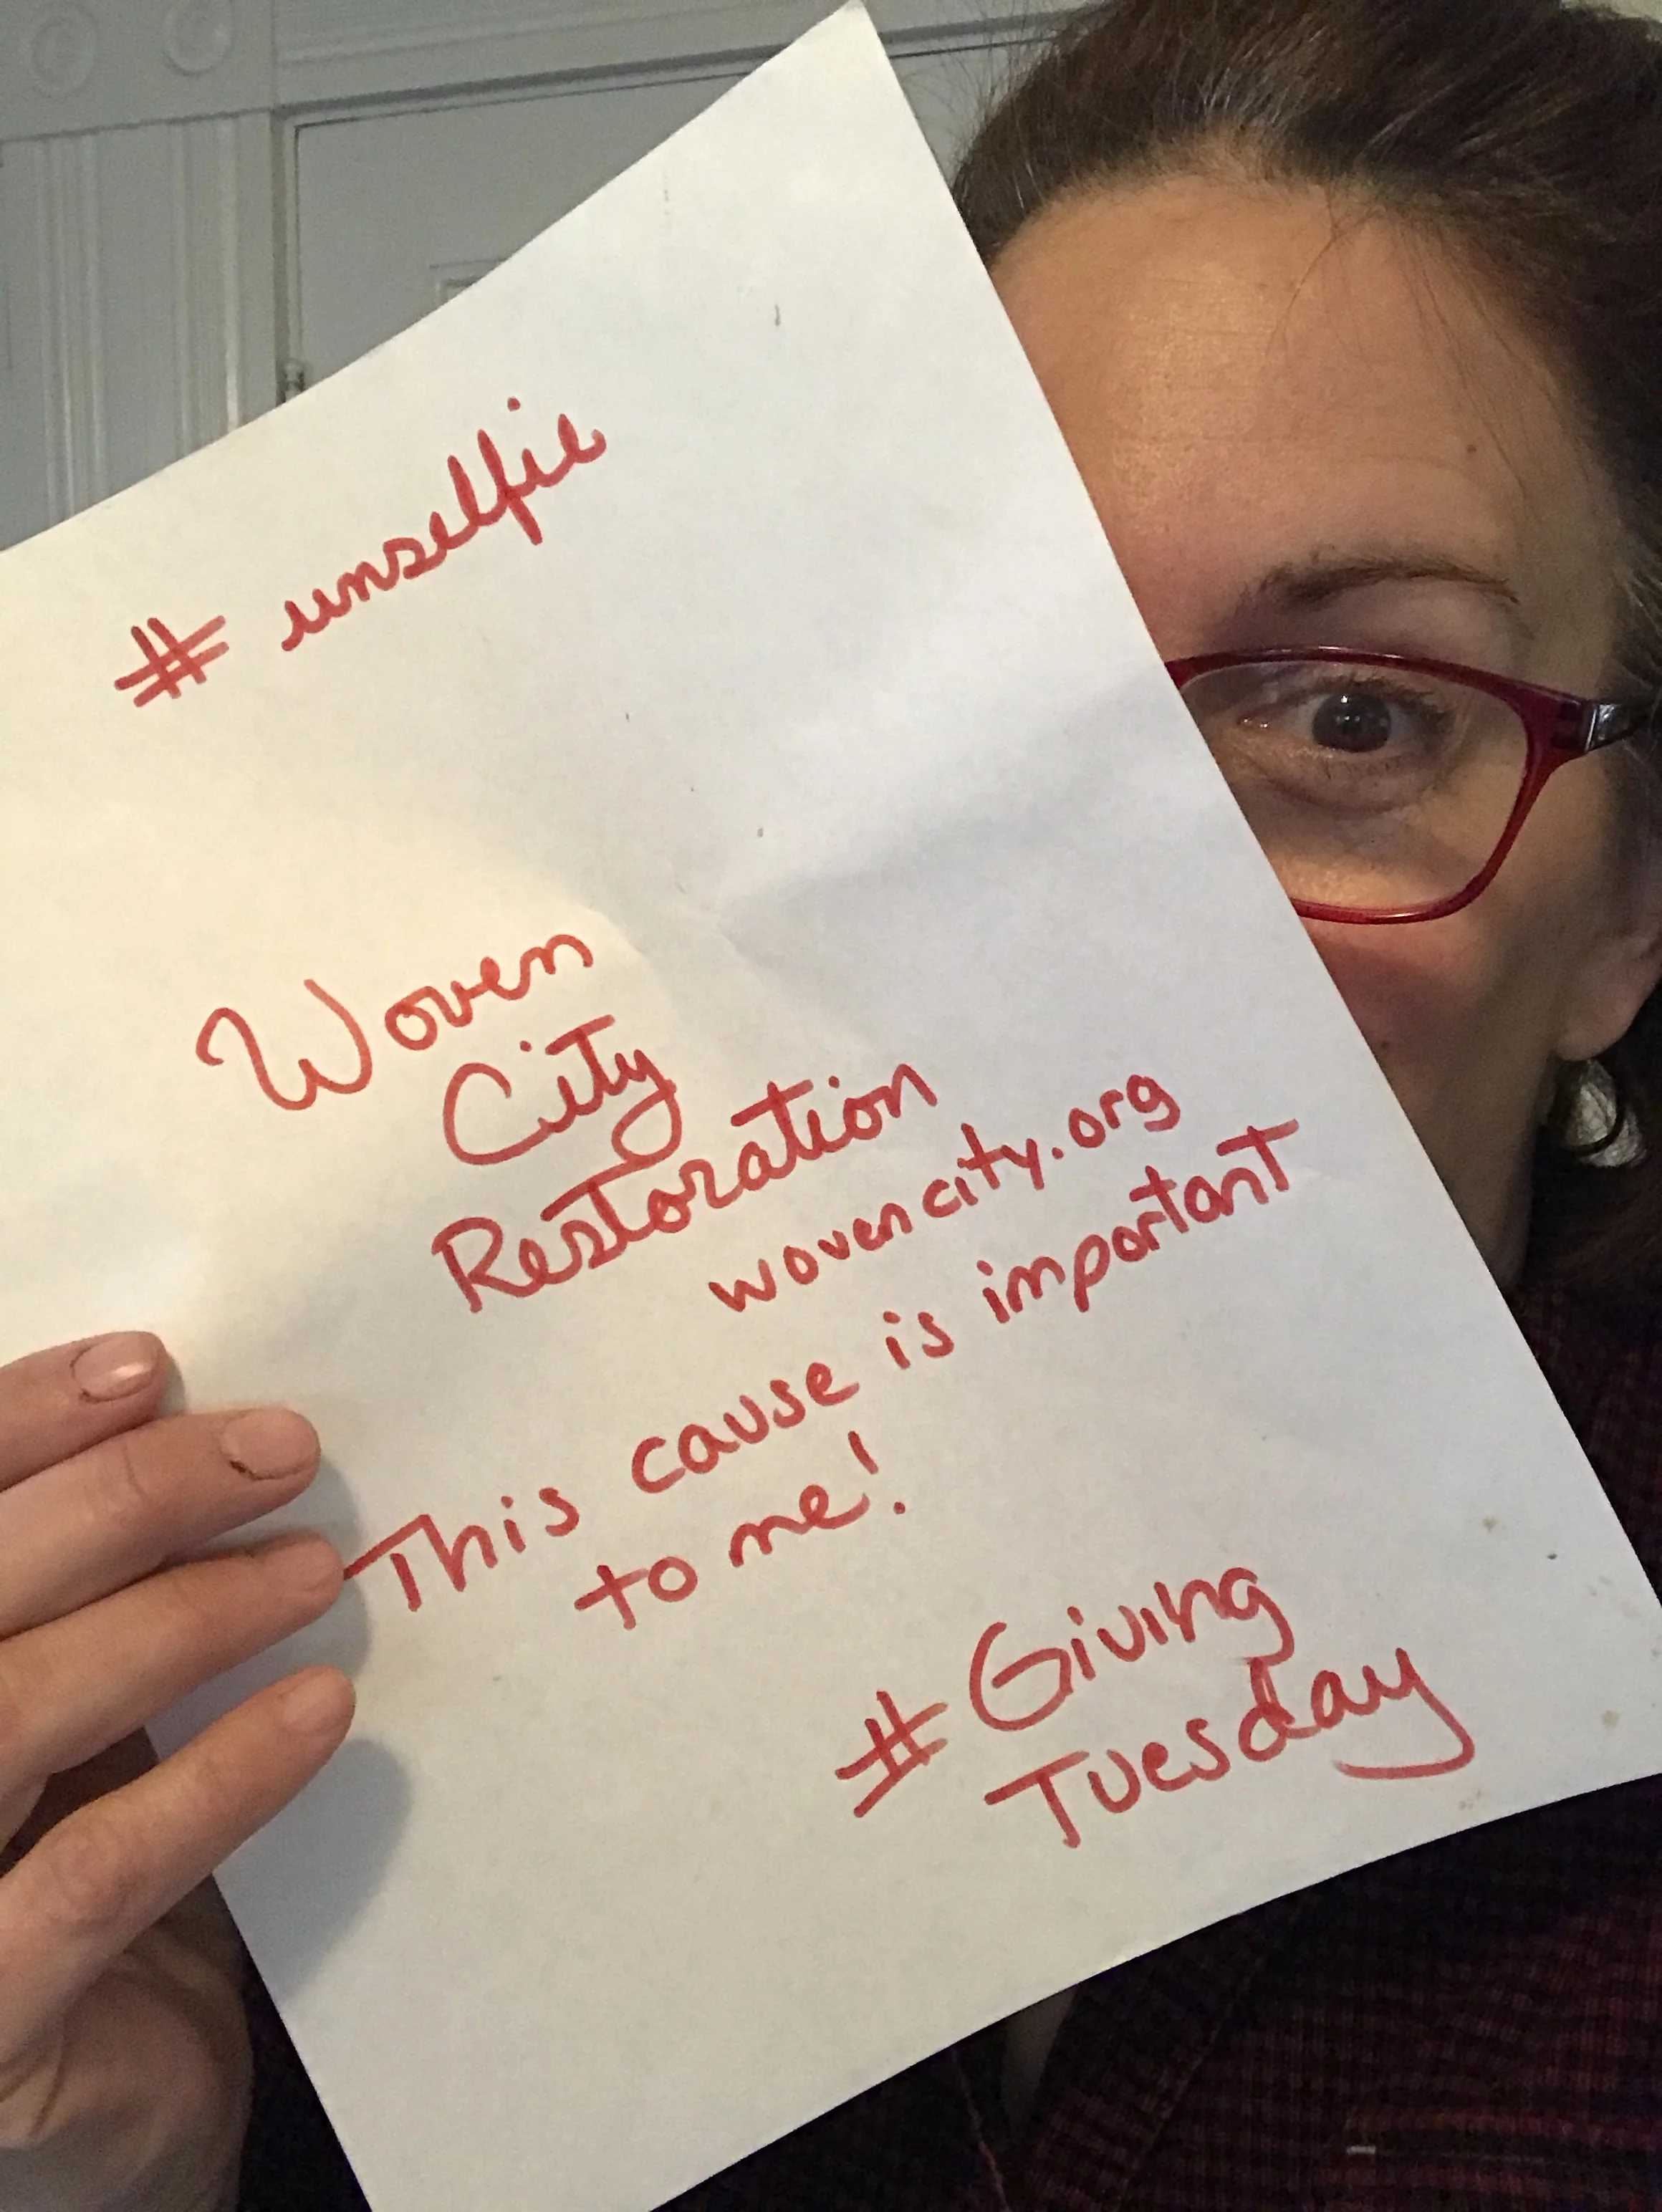 # unselfie
Woven
City
Restoration
wovencity.org
This cause is important
to me!
# Giving
Tuesday